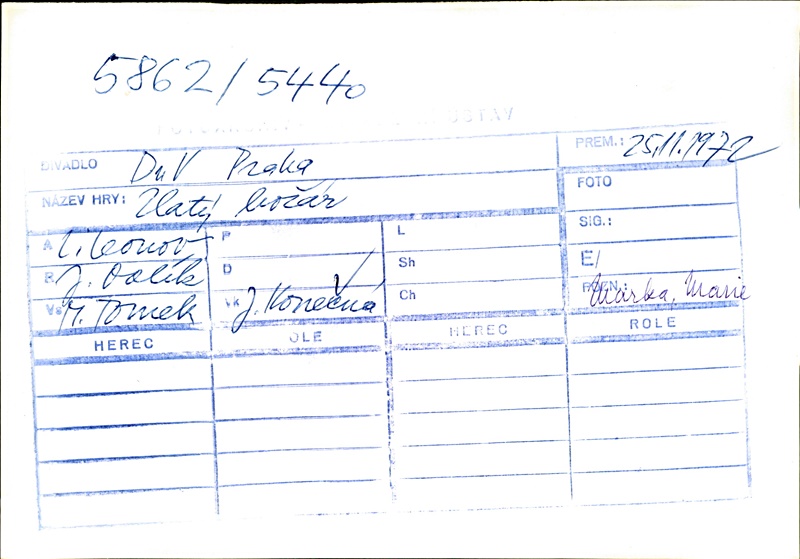 5862/5440
ÚSTAV
DIVADLO DnV Praha PREM.: 25.11.1972
NÁZEV HRY: Zlatý kočár FOTO
A L. Leonov P L SIG.:
R J. Dalík D Sh E/
Vs M. Tomek Vk J. Konečná Ch POZN.: Márka, Marie
HEREC OLE HEREC ROLE